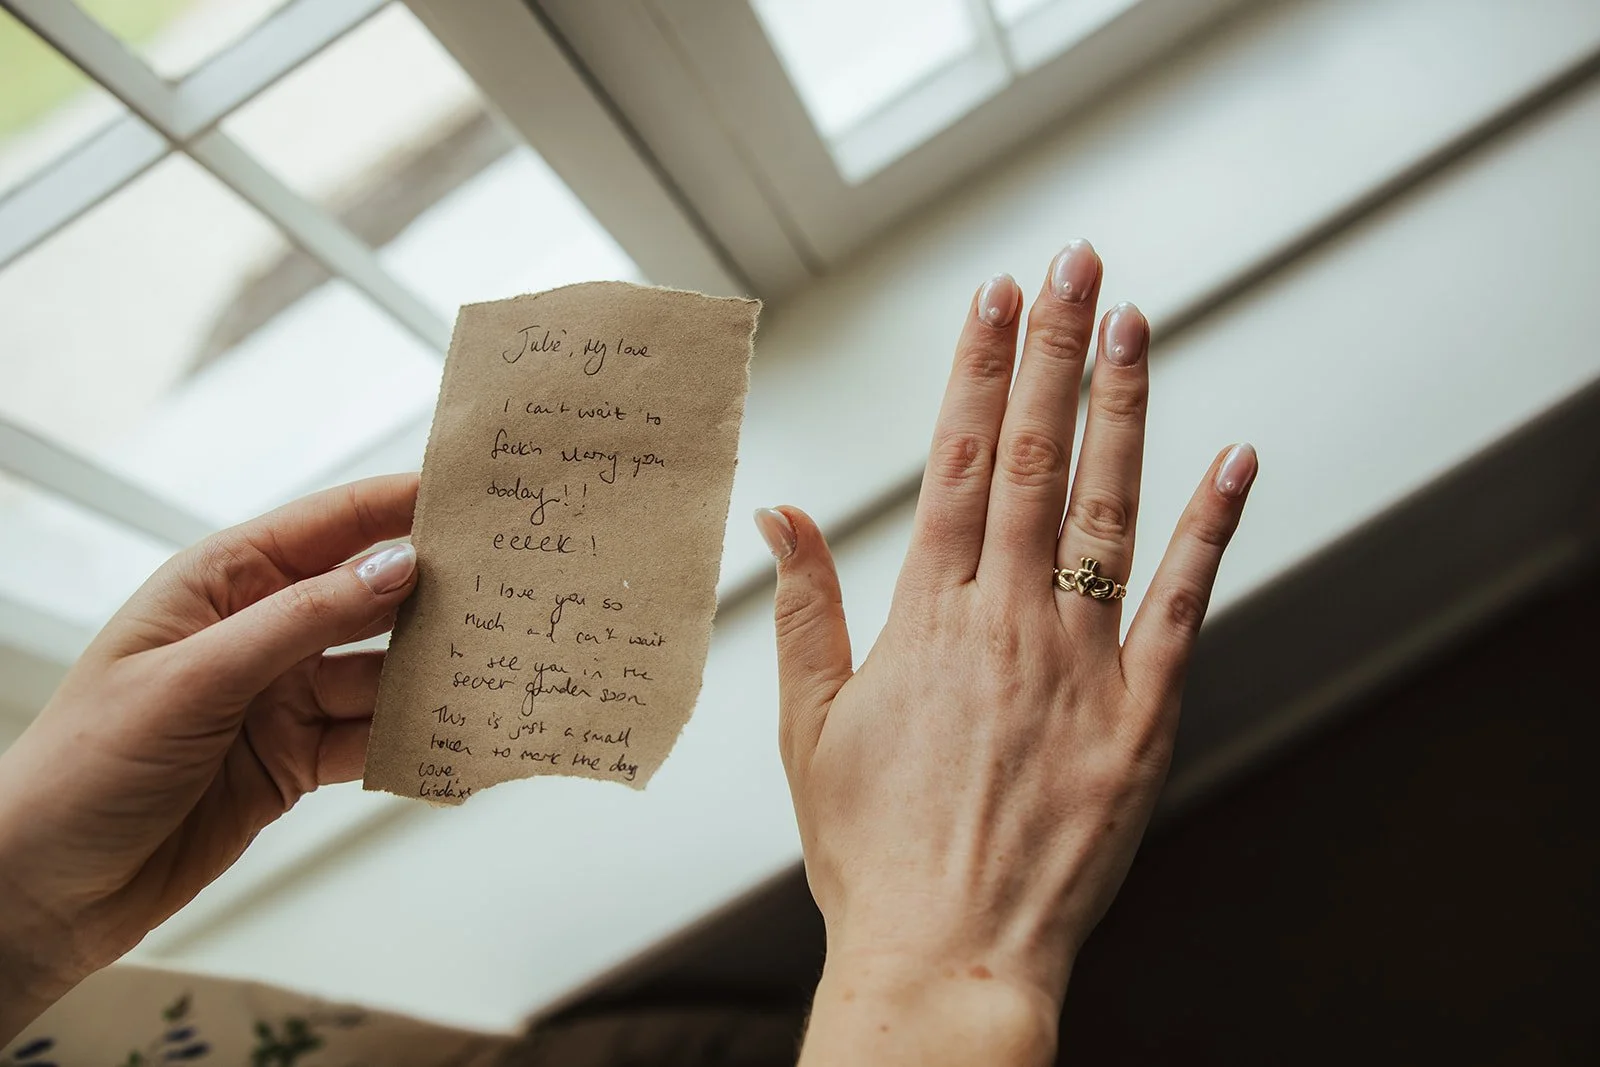 Julie, My love
I can't wait to
feckin marry you
today!!
eeeek!
I love you so
much and can't wait
to see you in the
secret garden soon
This is just a small
token to mark the day
love,
Linda xx